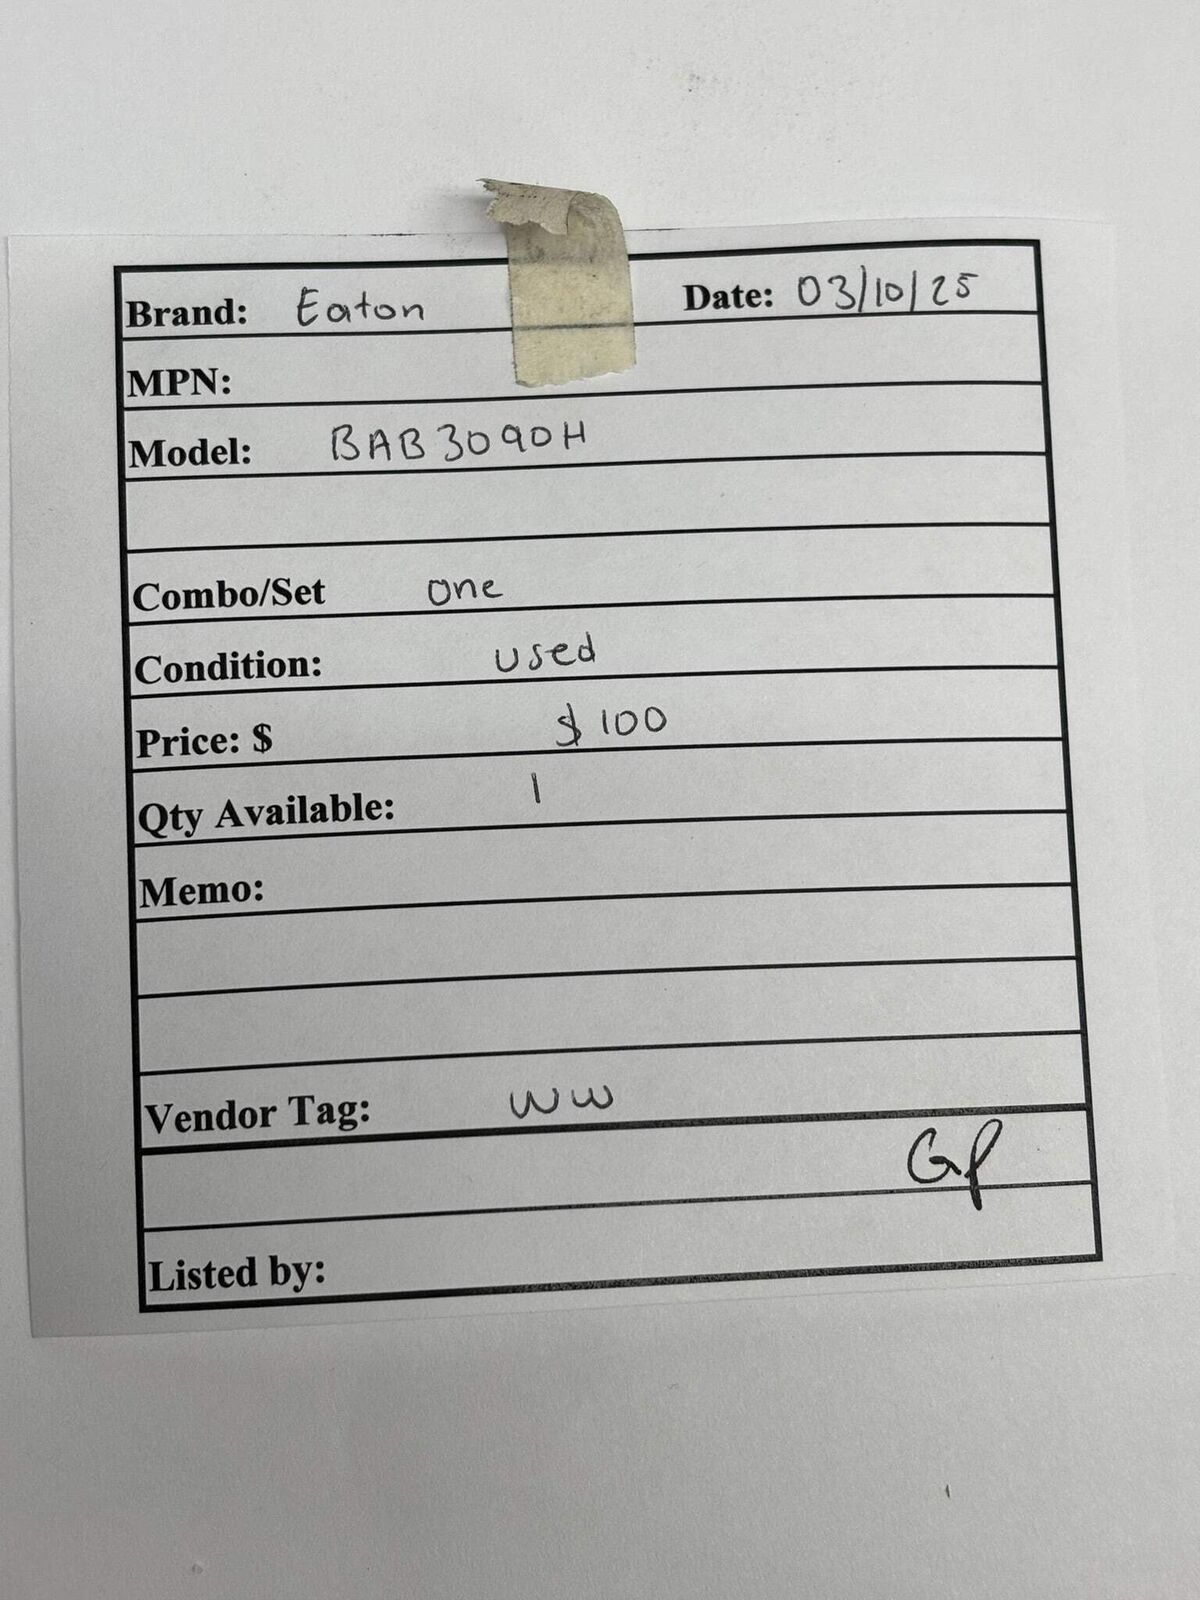 Brand: Eaton Date: 03/10/25
MPN:
Model: BAB3090H
Combo/Set one
Condition: used
Price: $ $100
Qty Available: 1
Memo:
Vendor Tag: WW
GP
Listed by: